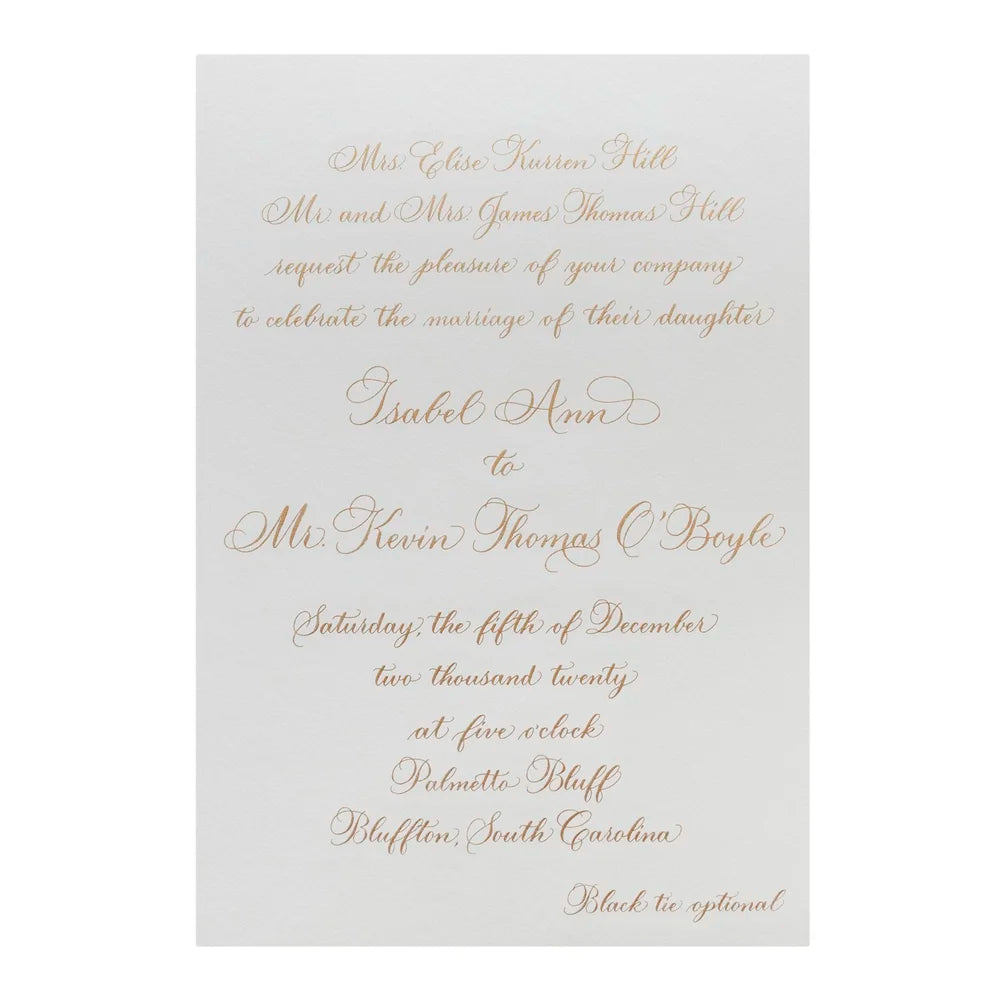 Mrs. Elise Kurren Hill
Mr. and Mrs. James Thomas Hill
request the pleasure of your company
to celebrate the marriage of their daughter
Isabel Ann
to
Mr. Kevin Thomas O'Boyle
Saturday, the fifth of December
two thousand twenty
at five o'clock
Palmetto Bluff
Bluffton, South Carolina
Black tie optional